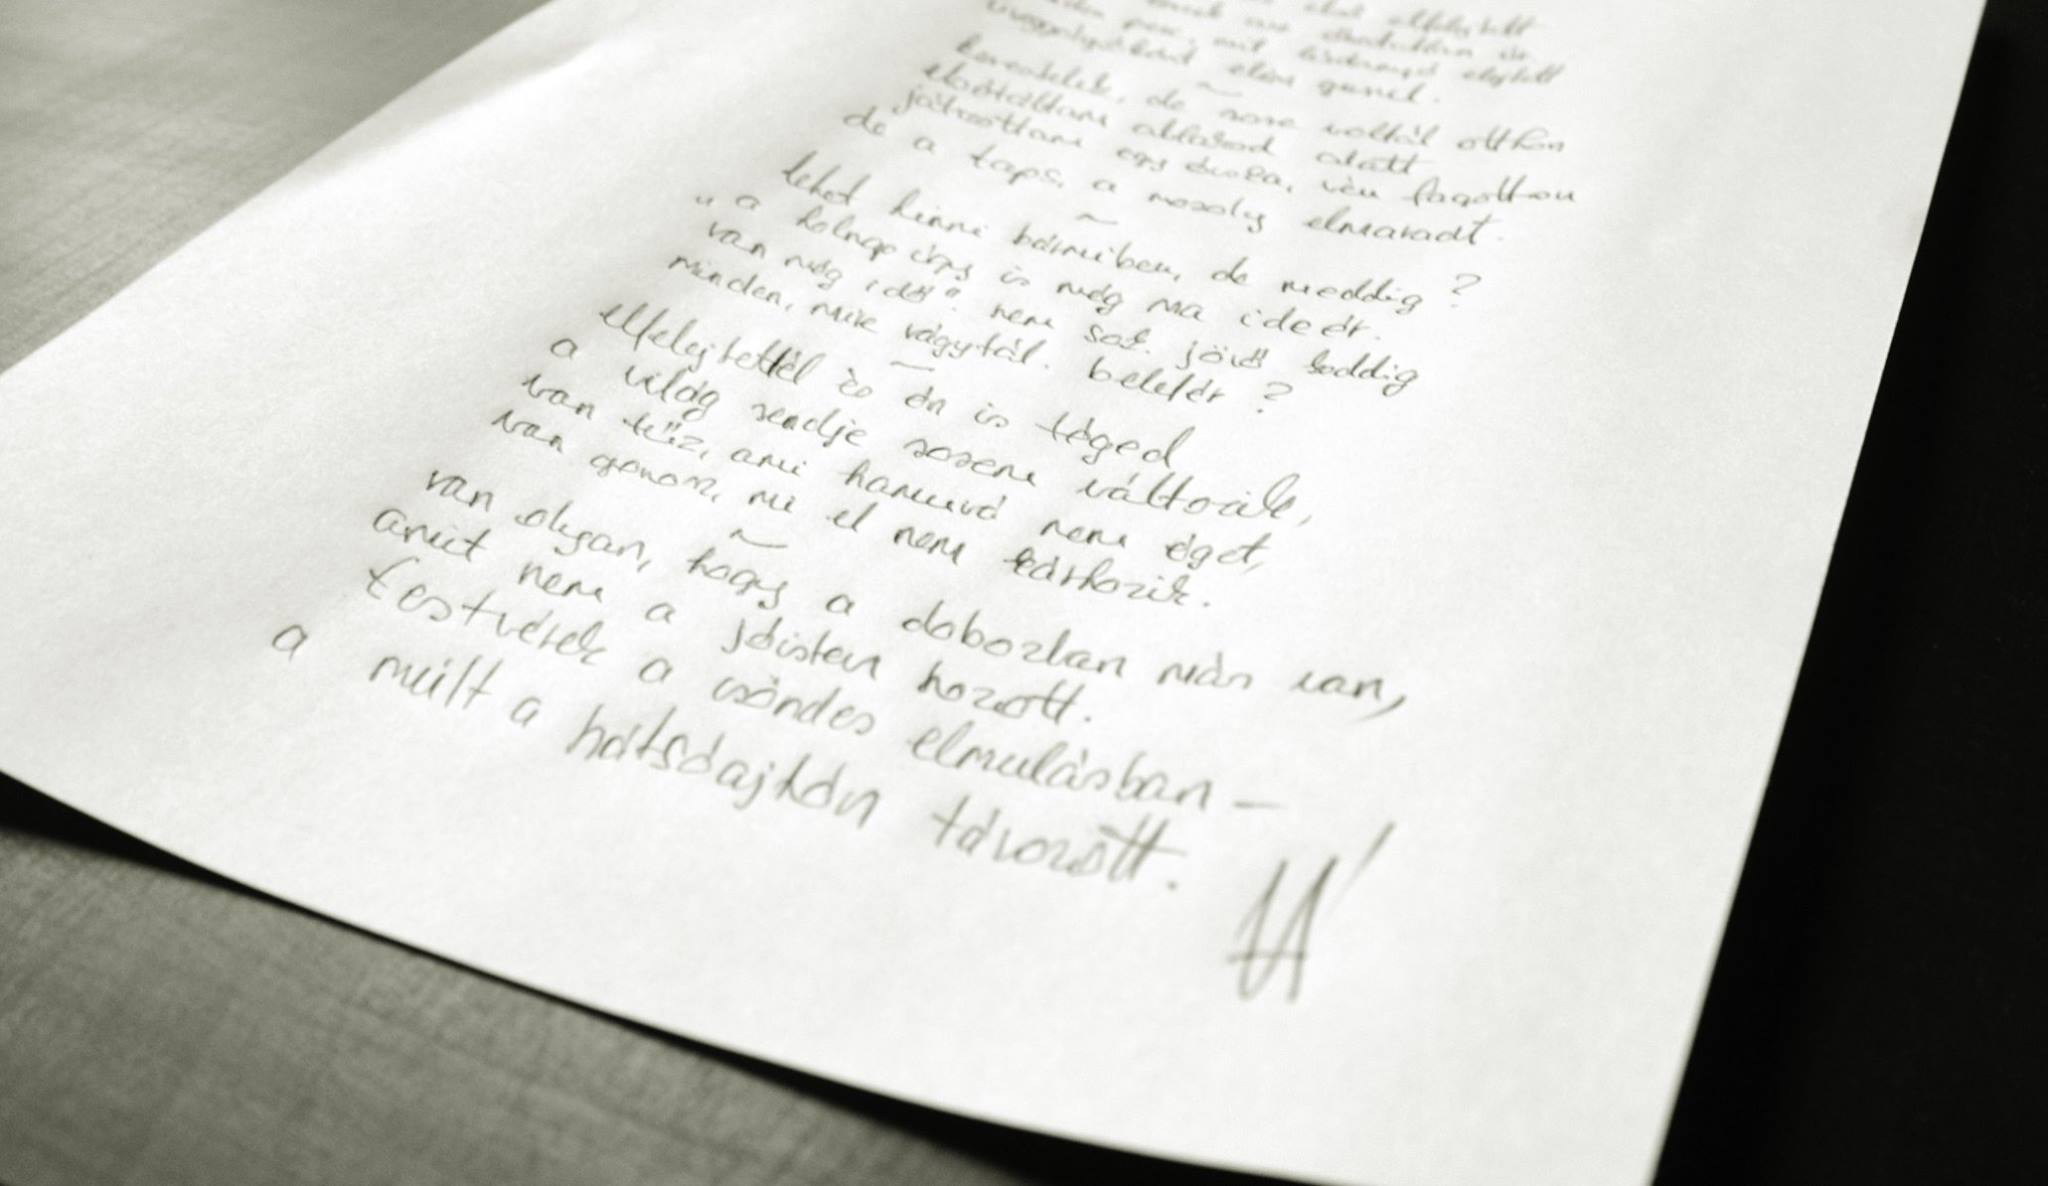 kerestelek, de sose voltál otthon
ablakod alatt
játszottam egy ócska, vén fagotton
de a taps, a mosoly elmaradt.
~
lehet hinni bármiben, de meddig?
„a holnap úgyis még ma ideér.
van még idő" nem sok. jövő keddig
minden, mire vágytál. belefér?
~
elfelejtettél és én is téged
a világ rendje sosem változik,
van tűz, ami hamuvá nem éget,
van gonosz, mi el nem kárhozik.
~
van olyan, hogy a dobozban más van,
amit nem a jóisten hozott.
testvérek a csöndes elmulásban –
a múlt a hátsóajtón távozott.